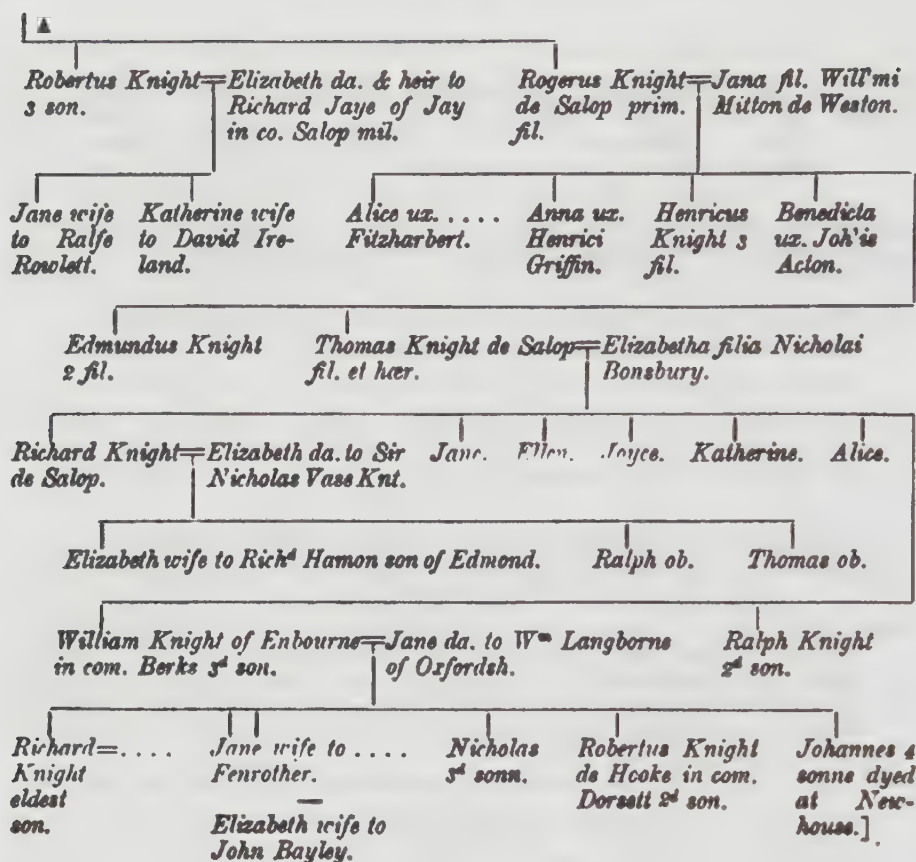 A
Robertus Knight=Elizabeth da. & heir to
3 son. Richard Jaye of Jay
in co. Salop mil.
Rogerus Knight=Jana fil. Will'mi
de Salop prim. Mitton de Weston.
fil.
Jane wife
to Ralfe
Rowlett.
Katherine wife
to David Ire-
land.
Alice ux. . . . . .
Fitzharbert.
Anna ux.
Henrici
Griffin.
Henricus
Knight 3
fil.
Benedicta
ux. Joh'is
Acton.
Edmundus Knight
2 fil.
Thomas Knight de Salop=Elizabetha filia Nicholai
fil. et hær. Bonsbury.
Richard Knight=Elizabeth da. to Sir
de Salop. Nicholas Vase Knt.
Jane. Ellen. Joyce. Katherine. Alice.
Elizabeth wife to Richd Hamon son of Edmond. Ralph ob. Thomas ob.
William Knight of Enbourne=Jane da. to Wm Langborne
in com. Berks 3d son. of Oxfordsh.
Ralph Knight
2d son.
Richard=. . . .
Knight
eldest
son.
Jane wife to . . . .
Fenrother.
Elizabeth wife to
John Bayley.
Nicholas
3d sonn.
Robertus Knight
de Hooke in com.
Dorsett 2d son.
Johannes 4
sonne dyed
at New-
house.]